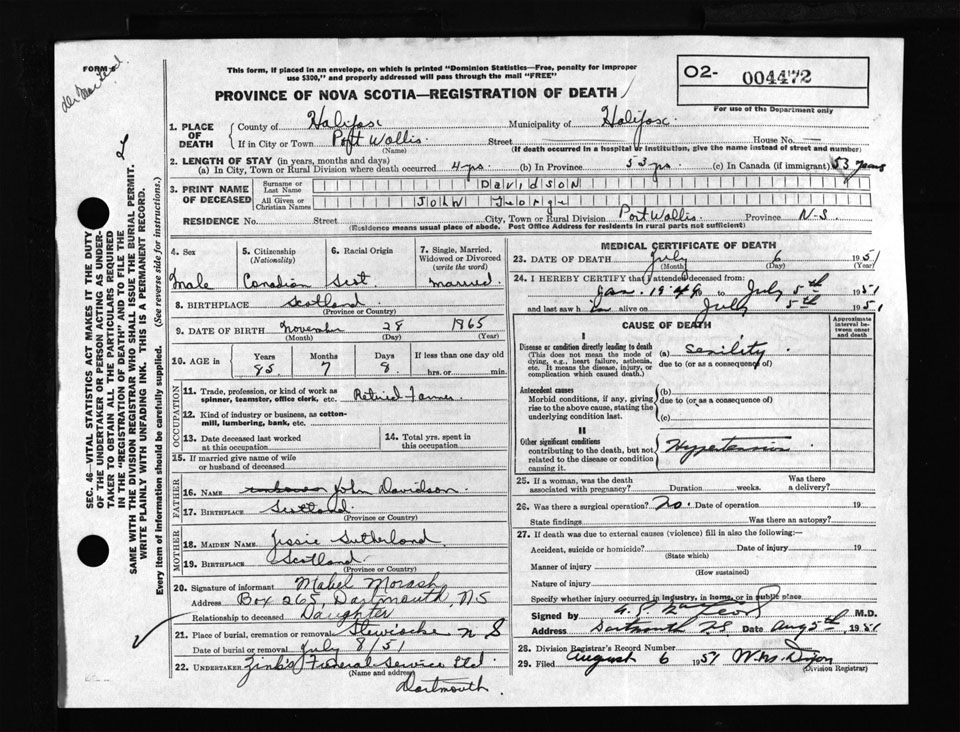 FORM 6
This form, if placed in an envelope, on which is printed "Dominion Statistics—Free, penalty for improper
use $300," and properly addressed will pass through the mail "FREE"
O2- 004472
For use of the Department only
PROVINCE OF NOVA SCOTIA—REGISTRATION OF DEATH
1. PLACE OF DEATH { County of Halifax Municipality of Halifax
If in City or Town Port Wallis Street House No. —
(Name) (If death occurred in a hospital or institution, give the name instead of street and number)
2. LENGTH OF STAY (in years, months and days)
(a) In City, Town or Rural Division where death occurred 4 yrs. (b) In Province 53 yrs. (c) In Canada (if immigrant) 53 years
3. PRINT NAME OF DECEASED { Surname or Last Name DavidsoN
All Given or Christian Names JOhN George
RESIDENCE No. Street City, Town or Rural Division Port Wallis. Province N-S.
(Residence means usual place of abode. Post Office Address for residents in rural parts not sufficient)
4. Sex Male
5. Citizenship (Nationality) Canadian
6. Racial Origin Scot.
7. Single, Married, Widowed or Divorced (write the word) Married
8. BIRTHPLACE Scotland
(Province or Country)
9. DATE OF BIRTH November 28 1865
(Month) (Day) (Year)
10. AGE in Years 85. Months 7 Days 8. If less than one day old hrs. or min.
OCCUPATION
11. Trade, profession, or kind of work as spinner, teamster, office clerk, etc. Retired Farmer
12. Kind of industry or business, as cotton-mill, lumbering, bank, etc.
13. Date deceased last worked at this occupation
14. Total yrs. spent in this occupation
15. If married give name of wife or husband of deceased
FATHER
16. NAME John Davidson.
17. BIRTHPLACE Scotland.
(Province or Country)
MOTHER
18. MAIDEN NAME Jessie Sutherland
19. BIRTHPLACE Scotland.
(Province or Country)
20. Signature of informant Mabel Morash
Address Box 265, Dartmouth, NS
Relationship to deceased Daughter
21. Place of burial, cremation or removal Stewiacke N S
Date of burial or removal July 8/51
22. UNDERTAKER Zink's Funeral Service Ltd
(Name and address)
Dartmouth.
MEDICAL CERTIFICATE OF DEATH
23. DATE OF DEATH July 6 1951
(Month) (Day) (Year)
24. I HEREBY CERTIFY that I attended deceased from:
Jan. 1946 to July 5th 1951
and last saw h alive on July 5th 1951
CAUSE OF DEATH
Approximate interval between onset and death
I
Disease or condition directly leading to death (This does not mean the mode of dying, e.g., heart failure, asthenia, etc. It means the disease, injury, or complication which caused death.)
(a) Senility
due to (or as a consequence of)
Antecedent causes
Morbid conditions, if any, giving rise to the above cause, stating the underlying condition last.
(b)
due to (or as a consequence of)
(c)
II
Other significant conditions contributing to the death, but not related to the disease or condition causing it.
Hypertension
25. If a woman, was the death associated with pregnancy? Duration weeks. Was there a delivery?
26. Was there a surgical operation? No. Date of operation 19
State findings Was there an autopsy?
27. If death was due to external causes (violence) fill in also the following:—
Accident, suicide or homicide? Date of injury 19
(State which)
Manner of injury
(How sustained)
Nature of injury
Specify whether injury occurred in industry, in home, or in public place
Signed by M.D.
Address Dartmouth N.S. Date Aug 5th, 1951
28. Division Registrar's Record Number
29. Filed August 6 1951 W. M. Dixon
(Division Registrar)
SEC. 46—VITAL STATISTICS ACT MAKES IT THE DUTY
OF THE UNDERTAKER OR PERSON ACTING AS UNDER-
TAKER TO OBTAIN ALL THE PARTICULARS REQUIRED
IN THE "REGISTRATION OF DEATH" AND TO FILE THE
SAME WITH THE DIVISION REGISTRAR WHO SHALL ISSUE THE BURIAL PERMIT.
WRITE PLAINLY WITH UNFADING INK. THIS IS A PERMANENT RECORD.
Every item of information should be carefully supplied. (See reverse side for instructions.)